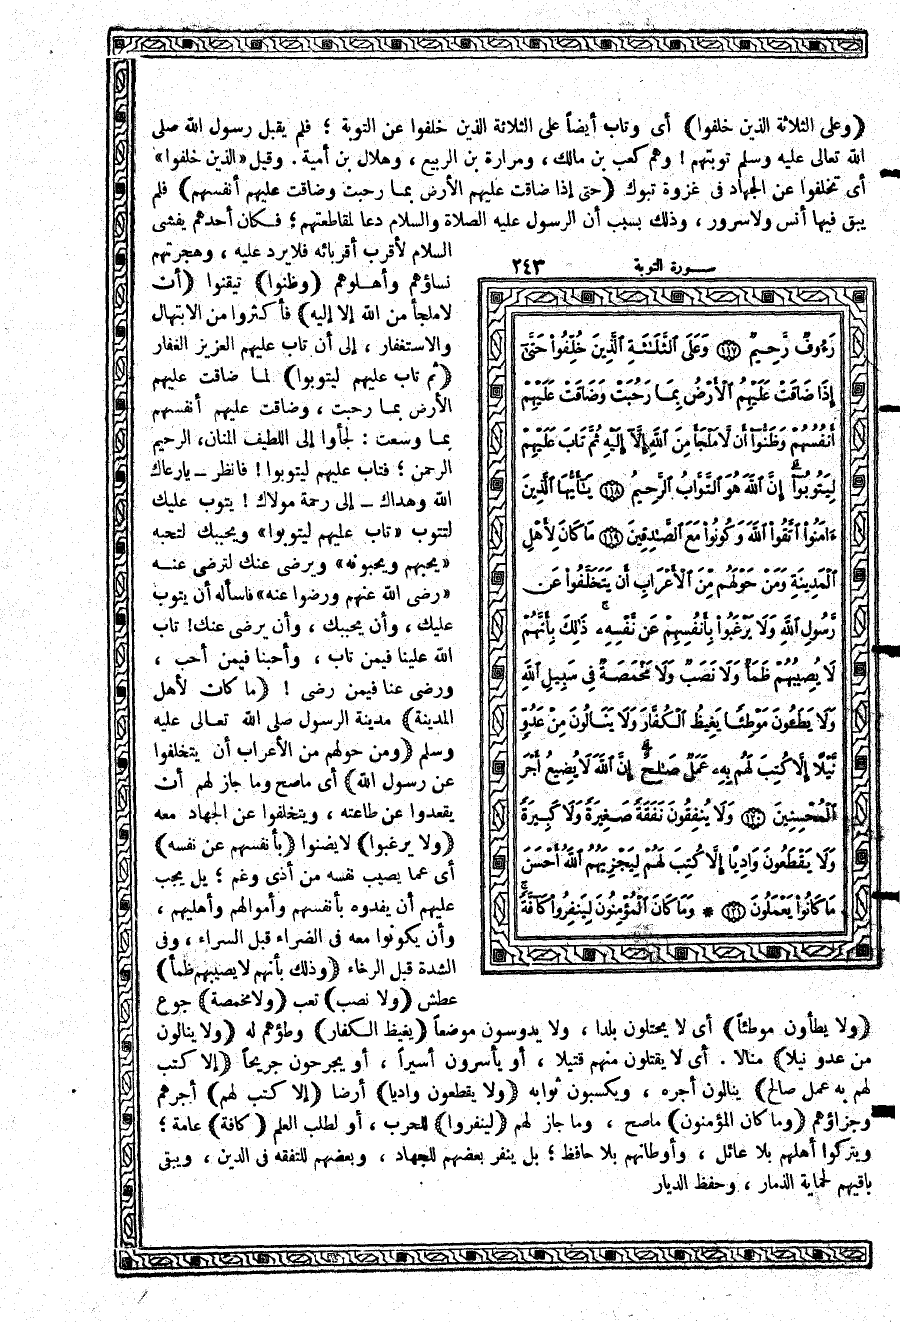 (وعلى الثلاثة الذين خلفوا) أى وتاب أيضاً على الثلاثة الذين خلفوا عن التوبة ؛ فلم يقبل رسول الله صلى
الله تعالى عليه وسلم توبتهم ! وهم كعب بن مالك ، ومرارة بن الربيع ، وهلال بن أمية . وقيل «الذين خلفوا»
أى تخلفوا عن الجهاد فى غزوة تبوك (حتى إذا ضاقت عليهم الأرض بمـا رحبت وضاقت عليهم أنفسهم) فلم
يبق فيها أنس ولاسرور ، وذلك بسبب أن الرسول عليه الصلاة والسلام دعا لمقاطعتهم ؛ فـكان أحدهم يفشى
السلام لأقرب أقربائه فلايرد عليه ، وهجرتهم
نساؤهم وأهـلوهم (وظنوا) تيقنوا (أن
لاملجأ من الله إلا إليه) فأكثروا من الابتهال
والاستغفار ، إلى أن تاب عليهم العزيز الغفار
(ثم تاب عليهم ليتوبوا) لمـا ضاقت عليهم
الأرض بمـا رحبت ، وضاقت عليهم أنفسهم
بمـا وسعت : لجأوا إلى اللطيف المنان، الرحيم
الرحمن ؛ فتاب عليهم ليتوبوا ! فانظر ــ يارعاك
الله وهداك ــ إلى رحمة مولاك ! يتوب عليك
لتتوب «تاب عليهم ليتوبوا» ويحببك لتحبه
«يحبهم ويحبونه» ويرضى عنك لترضى عنــه
«رضى الله عنهم ورضوا عنه» فاسأله أن يتوب
عليك ، وأن يحببك ، وأن يرضى عنك! تاب
الله علينا فيمن تاب ، وأحبنا فيمن أحب ،
ورضى عنا فيمن رضى ! (ما كان لأهل
المدينة) مدينة الرسول صلى الله تعـالى عليه
وسلم (ومن حولهم من الأعراب أن يتخلفوا
عن رسول الله) أى ماصح وما جاز لهم أن
يقعدوا عن طاعته ، ويتخلفوا عن الجهاد معه
(ولا يرغبوا) لايضنوا (بأنفسهم عن نفسه)
أى عما يصيب نفسه من أذى وغم ؛ بل يجب
عليهم أن يفدوه بأنفسهم وأموالهم وأهليهم ،
وأن يكونوا معه فى الضراء قبل السراء ، وفى
الشدة قبل الرخاء (وذلك بأنهم لايصيبهم ظمأ)
عطش (ولا نصب) تعب (ولامخمصة) جوع
سـورة التوبة ٢٤٣
رَءُوفٌ رَّحِيمٌ ١١٧ وَعَلَى ٱلثَّلَٰثَةِ ٱلَّذِينَ خُلِّفُوا۟ حَتَّىٰٓ
إِذَا ضَاقَتْ عَلَيْهِمُ ٱلْأَرْضُ بِمَا رَحُبَتْ وَضَاقَتْ عَلَيْهِمْ
أَنفُسُهُمْ وَظَنُّوٓا۟ أَن لَّا مَلْجَأَ مِنَ ٱللَّهِ إِلَّآ إِلَيْهِ ثُمَّ تَابَ عَلَيْهِمْ
لِيَتُوبُوٓا۟ ۚ إِنَّ ٱللَّهَ هُوَ ٱلتَّوَّابُ ٱلرَّحِيمُ ١١٨ يَٰٓأَيُّهَا ٱلَّذِينَ
ءَامَنُوا۟ ٱتَّقُوا۟ ٱللَّهَ وَكُونُوا۟ مَعَ ٱلصَّٰدِقِينَ ١١٩ مَا كَانَ لِأَهْلِ
ٱلْمَدِينَةِ وَمَنْ حَوْلَهُم مِّنَ ٱلْأَعْرَابِ أَن يَتَخَلَّفُوا۟ عَن
رَّسُولِ ٱللَّهِ وَلَا يَرْغَبُوا۟ بِأَنفُسِهِمْ عَن نَّفْسِهِۦ ۚ ذَٰلِكَ بِأَنَّهُمْ
لَا يُصِيبُهُمْ ظَمَأٌ وَلَا نَصَبٌ وَلَا مَخْمَصَةٌ فِى سَبِيلِ ٱللَّهِ
وَلَا يَطَـُٔونَ مَوْطِئًا يَغِيظُ ٱلْكُفَّارَ وَلَا يَنَالُونَ مِنْ عَدُوٍّ
نَّيْلًا إِلَّا كُتِبَ لَهُم بِهِۦ عَمَلٌ صَٰلِحٌ ۚ إِنَّ ٱللَّهَ لَا يُضِيعُ أَجْرَ
ٱلْمُحْسِنِينَ ١٢٠ وَلَا يُنفِقُونَ نَفَقَةً صَغِيرَةً وَلَا كَبِيرَةً
وَلَا يَقْطَعُونَ وَادِيًا إِلَّا كُتِبَ لَهُمْ لِيَجْزِيَهُمُ ٱللَّهُ أَحْسَنَ
مَا كَانُوا۟ يَعْمَلُونَ ١٢١ * وَمَا كَانَ ٱلْمُؤْمِنُونَ لِيَنفِرُوا۟ كَآفَّةً ۚ
(ولا يطأون موطئاً) أى لا يحتلون بلدا ، ولا يدوسون موضعاً (يغيظ الـكفار) وطؤهم له (ولا ينالون
من عدو نيلا) منالا . أى لا يقتلون منهم قتيلا ، أو يأسرون أسيراً ، أو يجرحون جريحاً (إلا كتب
لهم به عمل صالح) ينالون أجره ، ويكسبون ثوابه (ولا يقطعون واديا) أرضا (إلا كتب لهم) أجرهم
وجزاؤهم (وما كان المؤمنون) ماصح ، وما جاز لهم (لينفروا) للحرب ، أو لطلب العلم (كافة) عامة ؛
ويتركوا أهلهم بلا عائل ، وأوطانهم بلا حافظ ؛ بل ينفر بعضهم للجهاد ، وبعضهم للتفقه فى الدين ، ويبقى
باقيهم لحماية الذمار ، وحفظ الديار